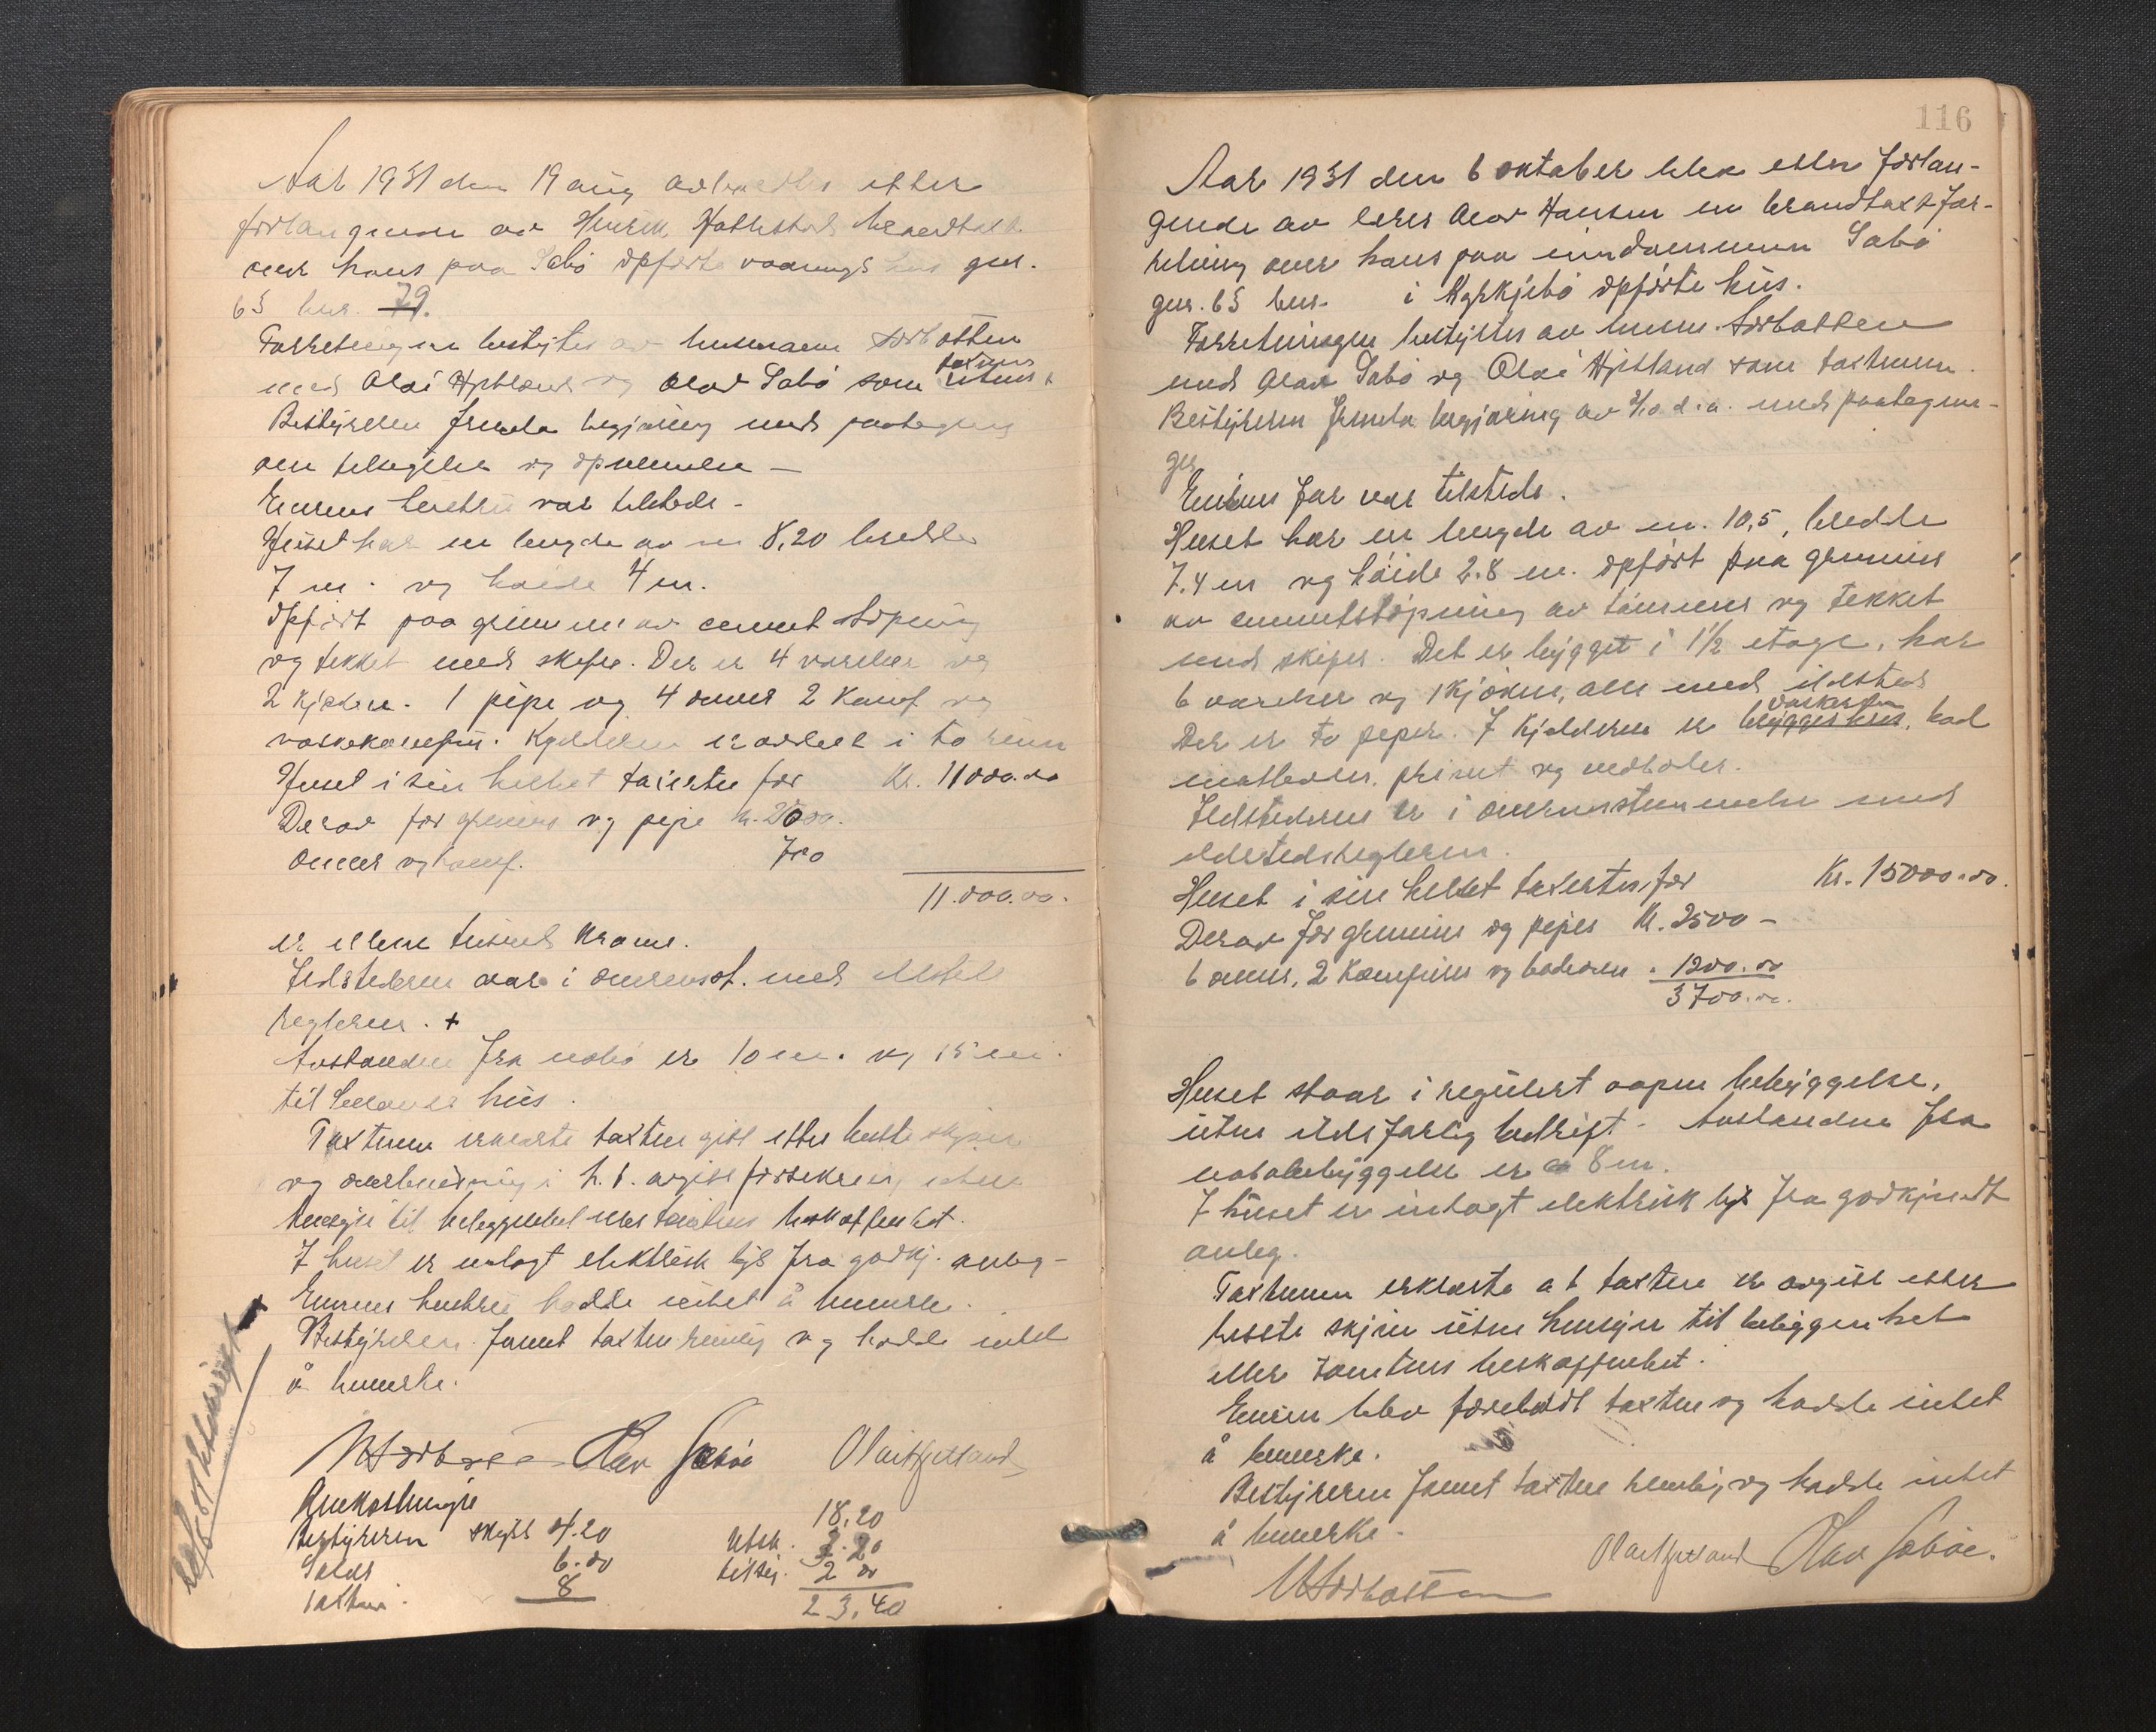 Aar 1931 den 19 aug avholdtes efter
forlangende av Henrik Hatlestad brandtakst
over hans paa Sæbø opførte vaaningshus gnr.
65 bnr. 79.
Forretningen bestyrtes av lensmann Sørbotten
med Olai Hjetland og Olav Sæbø som
Bestyreren fremla begjæring med paategning
om tilsigelse og opnevnelse —
Eierens hustru var tilstede -
Huset har en lengde av m 8,20 bredde
7 m. og høide 4 m.
Opført paa grunnmur av cement støpning
og tekket med skifer. Der er 4 værelser og
2 kjøkken. 1 pipe og 4 ovner 2 komf og
vaskekomfyr. Kjelderen er avdelt i to rum
Huset i sin helhet taxertes for Kr. 11000.00
Derav for grunnm og pipe kr. 2500.
ovner og komf. 700
11.000.00.
er elleve tusind kroner.
Ildstederne var i overensst. med ildsted
reglerne. +
Avstanden fra nabo er 10 m. og 15 m.
til hus.
Taxtmenn erklærte taxten gitt efter beste skjønn
og overbevisning i h. t. avgitt forsikring uten
hensyn til beliggenhet eller tomtens beskaffenhet.
I huset er innlagt elektrisk lys fra godkj. anleg -
Eierens hustru hadde intet å bemerke.
Bestyreren fannt taxten rimelig og hadde intet
å bemerke.
Sørbotten Olav Sæbøe Olai Hjetland
Omkostninger
Bestyreren skyss 4.20 18,20
Salær 6.00 Utsk. 3.20
taxtm. 8 tilsig. 2 00
23,40
116
Aar 1931 den 6 oktober blev efter forlan-
gende av lærer Olav Hansen en brandtaxtfor-
retning over hans paa eiendommen Sæbø
gnr. 65 bnr. i Kyrkjebø opførte hus.
Forretningen bestyrtes av lensm. Sørbotten
med Olav Sæbø og Olai Hjetland som taxtmenn.
Bestyreren fremla begjæring av 2/10 d.a. med paategnin-
ger
Eierens far var tilstede.
Huset har en lengde av m. 10,5, bredde
7.4 m og høide 2.8 m. opført paa grunnmur
av cementstøpning av tømmer og tekket
med skifer. Det er bygget i 1½ etage, har
6 værelser og 1 kjøkken, alle med ildsted
Der er to peper. I kjelderen er vaskerum bad
matboder, privet og vedboder.
Ildstederne er i overensstemmelse med
ildstedsreglerne.
Huset i sin helhet taxertes for Kr. 15000.00.
Derav for grunnm og piper Kr. 2500 -
6 ovner, 2 komfyrer og badeovn . 1200.00
3700.00.
Huset staar i regulert aapen bebyggelse,
uten ildsfarlig bedrift. Avstanden fra
nabobebyggelse er 8 m.
I huset er innlagt elektrisk lys fra godkjendt
anleg.
Taxtmenn erklærte at taxten er avgitt efter
beste skjønn uten hensyn til beliggenhet
eller tomtens beskaffenhet.
Eieren blev forelæst taxten og hadde intet
å bemerke.
Bestyreren fannt taxten rimelig og hadde intet
å bemerke.
Olai Hjetland Olav Sæbøe.
Sørbotten